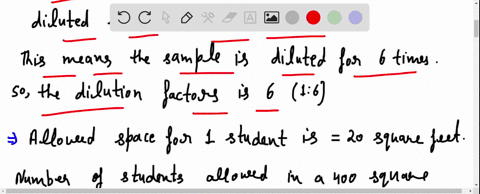 diluted.
This means the sample is diluted for 6 times.
so, the dilution factors is 6 (1:6]
⇒ Allowed space for 1 student is = 20 square feet.
Number of students allowed in a 400 square